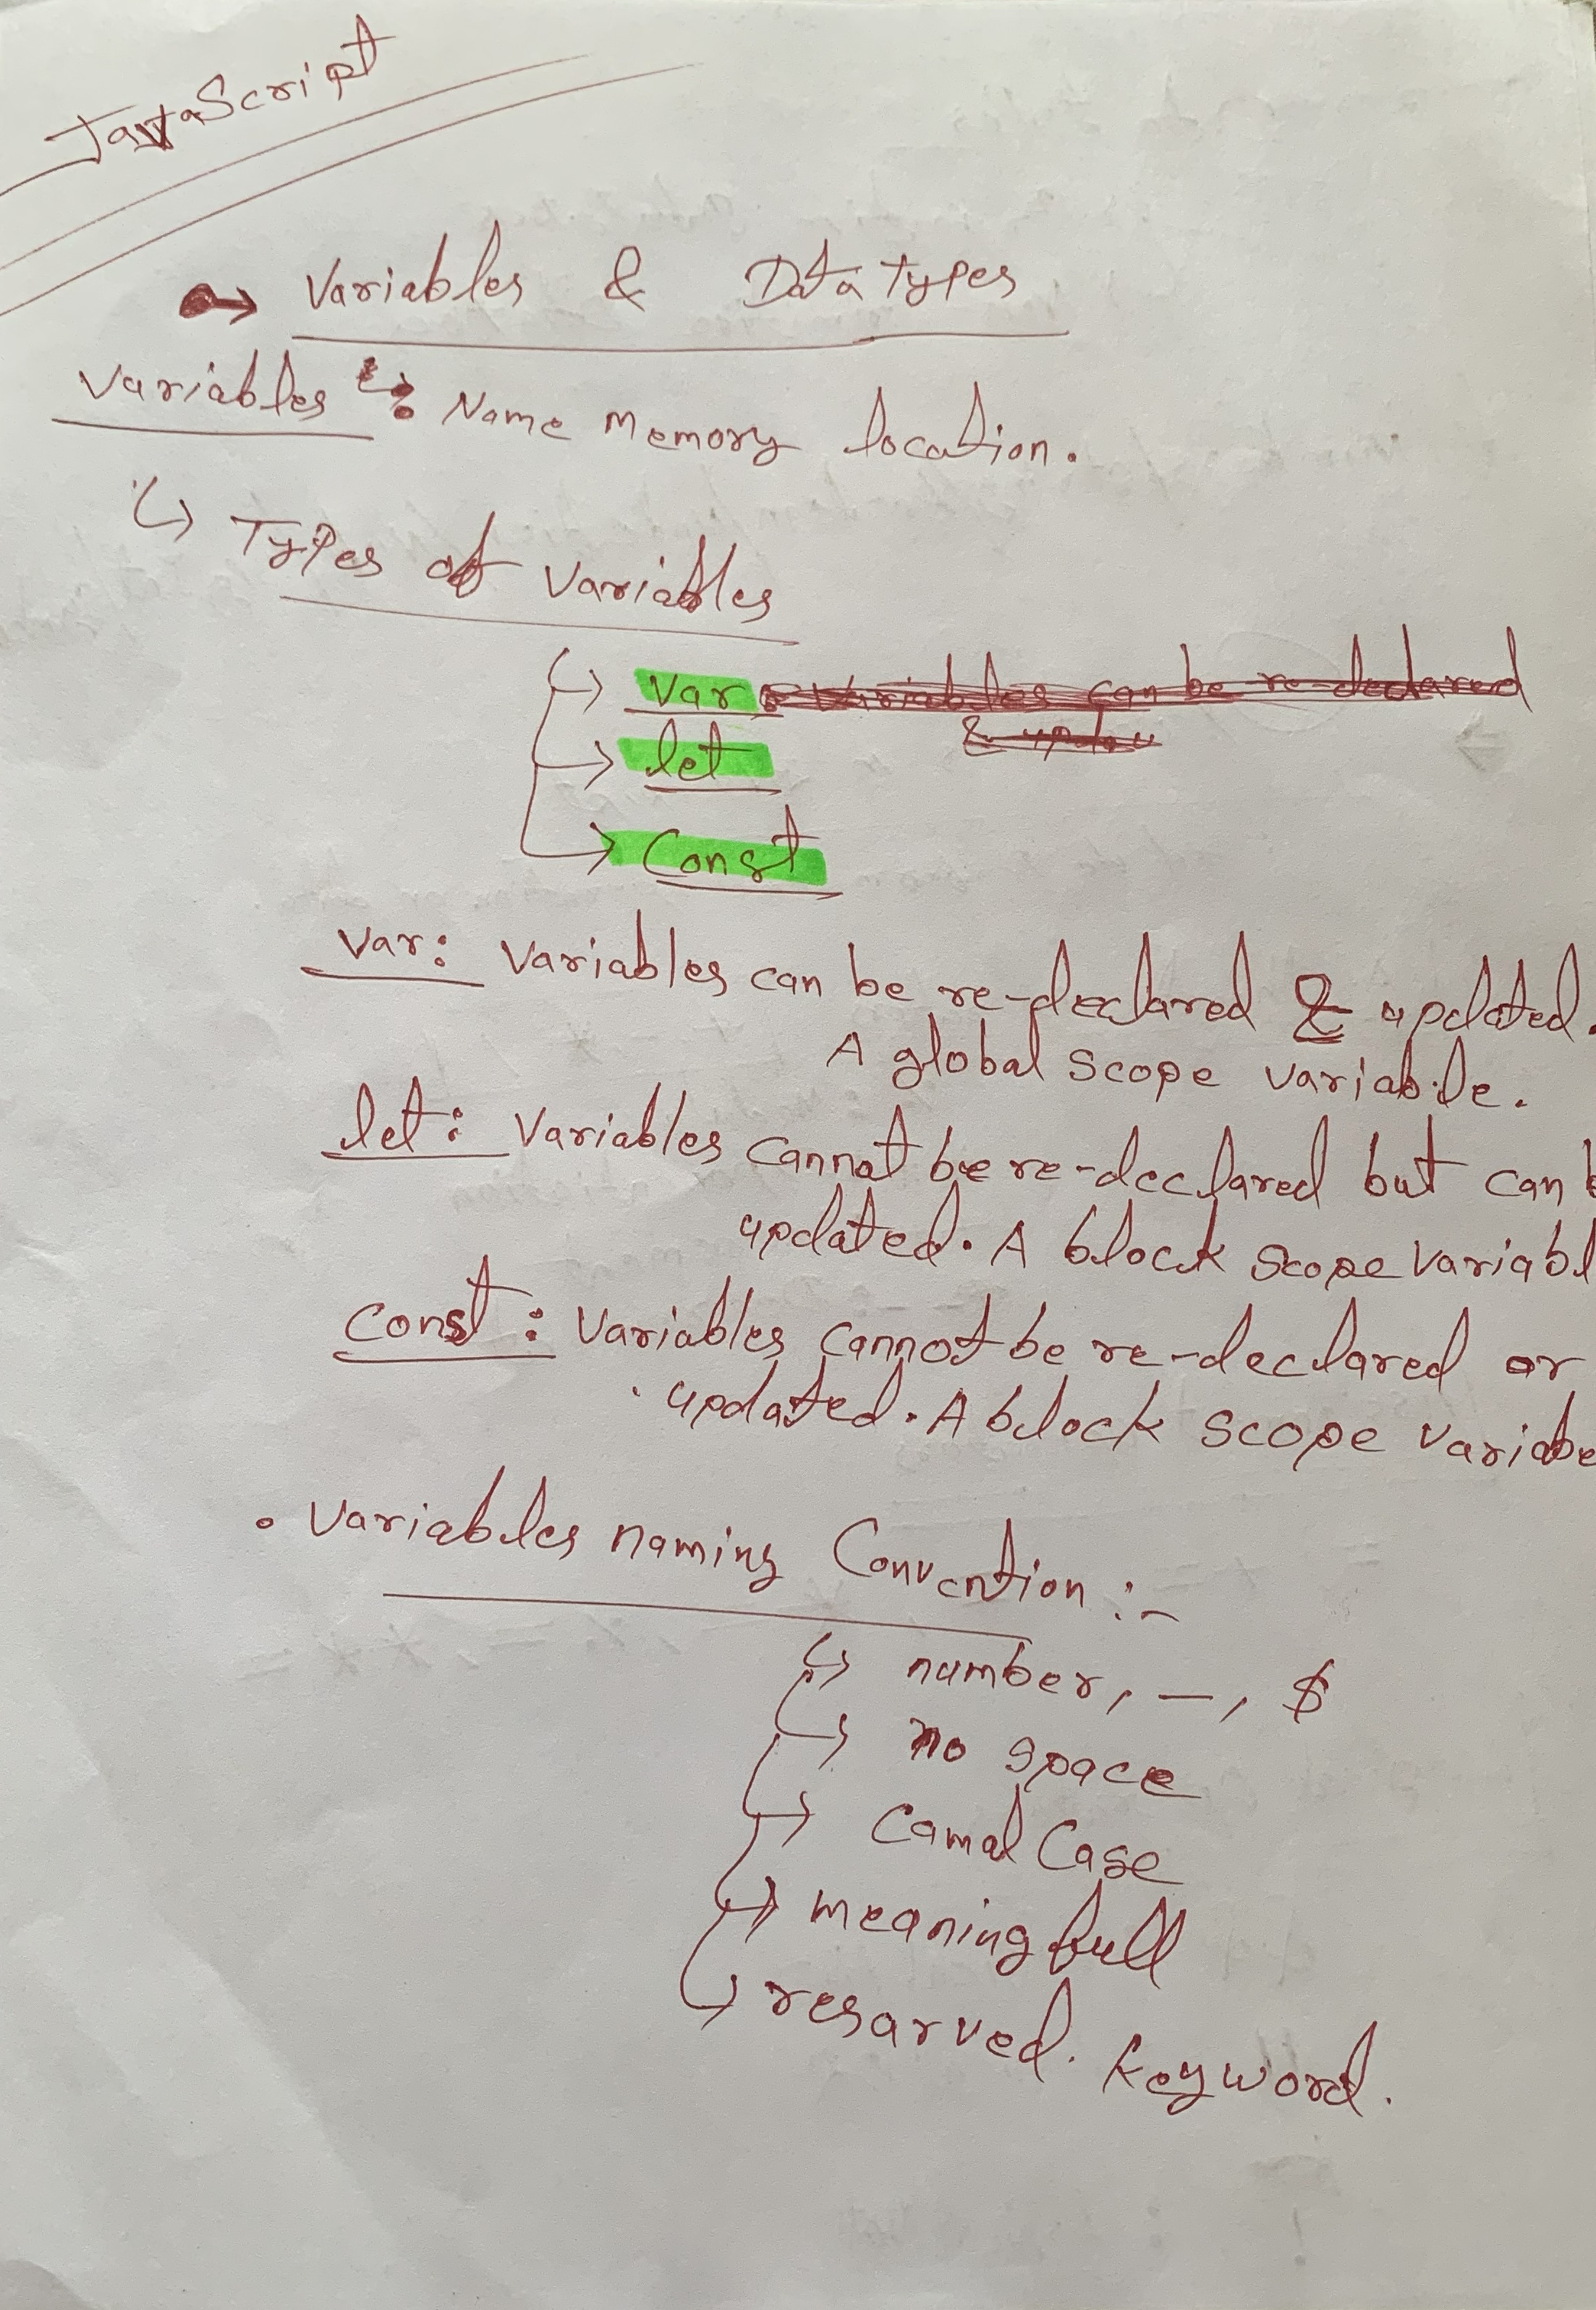 JavaScript
Variables & Data Types
Variables : Name Memory location.
Types of Variables
Var : Variables can be re-declared
& upda
let
Const
Var: Variables can be re-declared & updated.
A global scope variable.
let: Variables cannot be re-declared but can b
updated. A block scope variabl
const: Variables cannot be re-declared or
updated. A block scope variabe
• Variables naming Convention :-
number, _, $
no space
Camal Case
meaningfull
resarved. keyword.